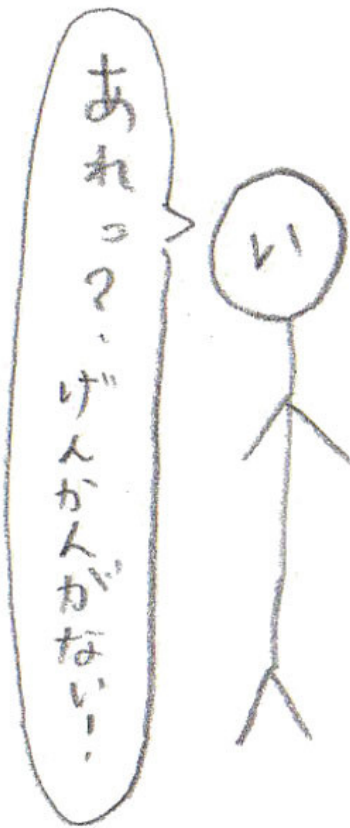 あれっ?.げんかんがない!.
い